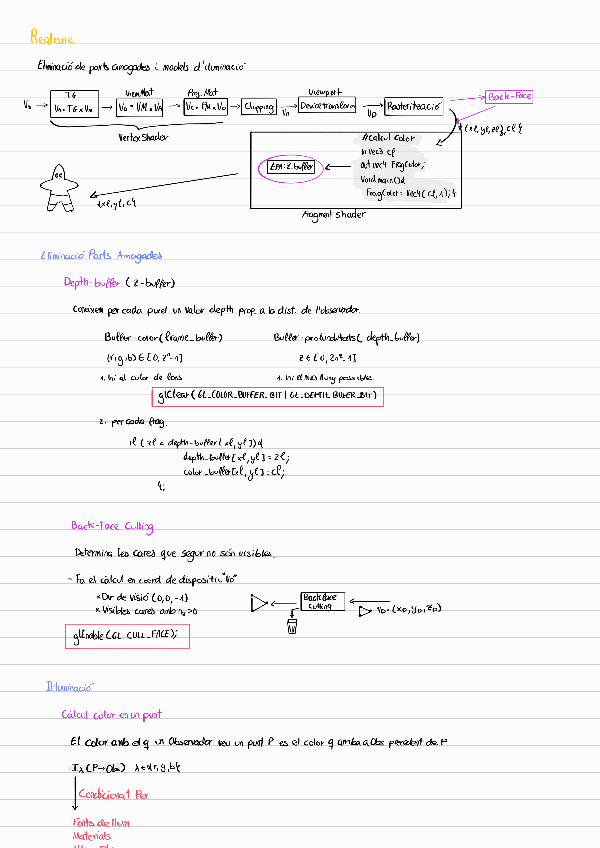 Realisme
Eliminació de parts amagades i models d'il·luminació
TG
View Mat
Proj. Mat
Viewport
Vm → Vn = TG x Vm → Vo = VM x Vn → Vc = PM x Vo → Clipping → Vn → Device transform → VD → Rasterització → Back-Face
Vertex Shader
(xf, yf, zf), cf
//Calcul color
in vec3 cf
out vec4 FragColor;
void main(){
FragColor = vec4(cf, 1);}
EPA: Z-buffer
Fragment Shader
(xf, yf, cf)
Eliminació Parts Amagades
Depth-buffer (Z-buffer)
Coneixem per cada pixel un valor depth prop. a la dist. de l'observador.
Buffer color (frame_buffer)
Buffer profunditats (depth_buffer)
(r,g,b) ∈ [0, 2ⁿ-1]
z ∈ [0, 2ⁿᶻ-1]
1. Ini al color de fons
1. Ini el més lluny possible.
glClear (GL_COLOR_BUFFER_BIT | GL_DEPTH_BUFFER_BIT)
2. per cada frag.
if (zf < depth-buffer [xf, yf]){
depth-buffer [xf, yf] = zf;
color-buffer [xf, yf] = cf;
};
Back-Face Culling
Determina les cares que segur no són visibles.
- Fa el càlcul en coord. de dispositiu "VD"
* Dir de visió (0,0,-1)
* Visibles cares amb nz > 0
Back face culling
VD = (xD, yD, zD)
glEnable (GL_CULL_FACE);
Il·luminació
Càlcul color en un punt
El color amb el q un Observador veu un punt P es el color q arriba a Obs procedent de P
Iλ (P→Obs) λ ∈ {r, g, b}
Condicionat Per
Fonts de llum
Materials